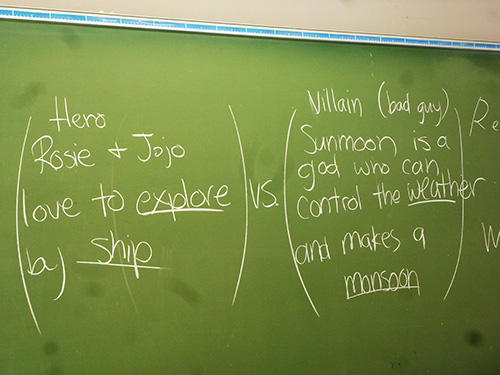 Hero
Rosie + Jojo
love to explore
by ship
vs.
Villain (bad guy)
Sunmoon is a
god who can
control the weather
and makes a
monsoon
Re
W